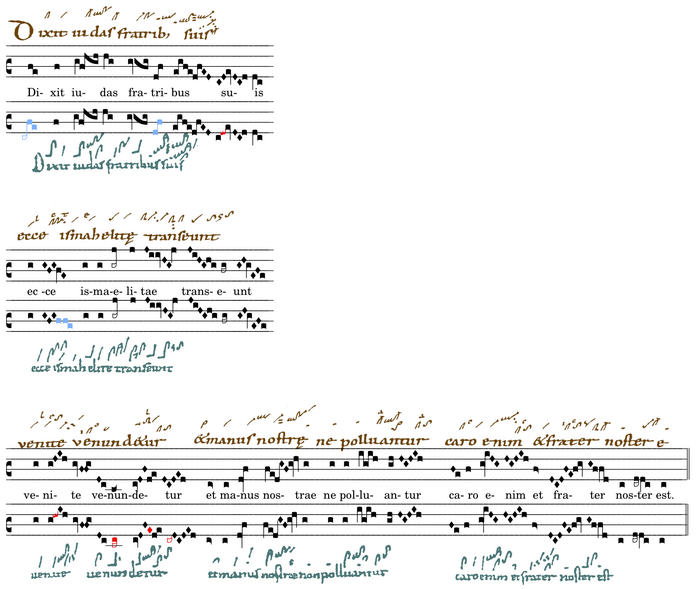 Dixit iudas fratrib; suis
Di- xit iu- das fra- tri- bus su- is
Dixit iudas fratribus suis
ecce ismahelitę transeunt
ec -ce is-ma-e- li- tae trans- e- unt
ecce ismahelite transeunt
venite venundetur &manus nostrę ne polluantur caro enim &frater noster e
ve- ni- te ve-nun-de- tur et ma-nus nos- trae ne pol-lu- an-tur ca-ro e- nim et fra- ter nos-ter est.
uenite uenundetur et manus nostrae non polluantur caro enim et frater noster est